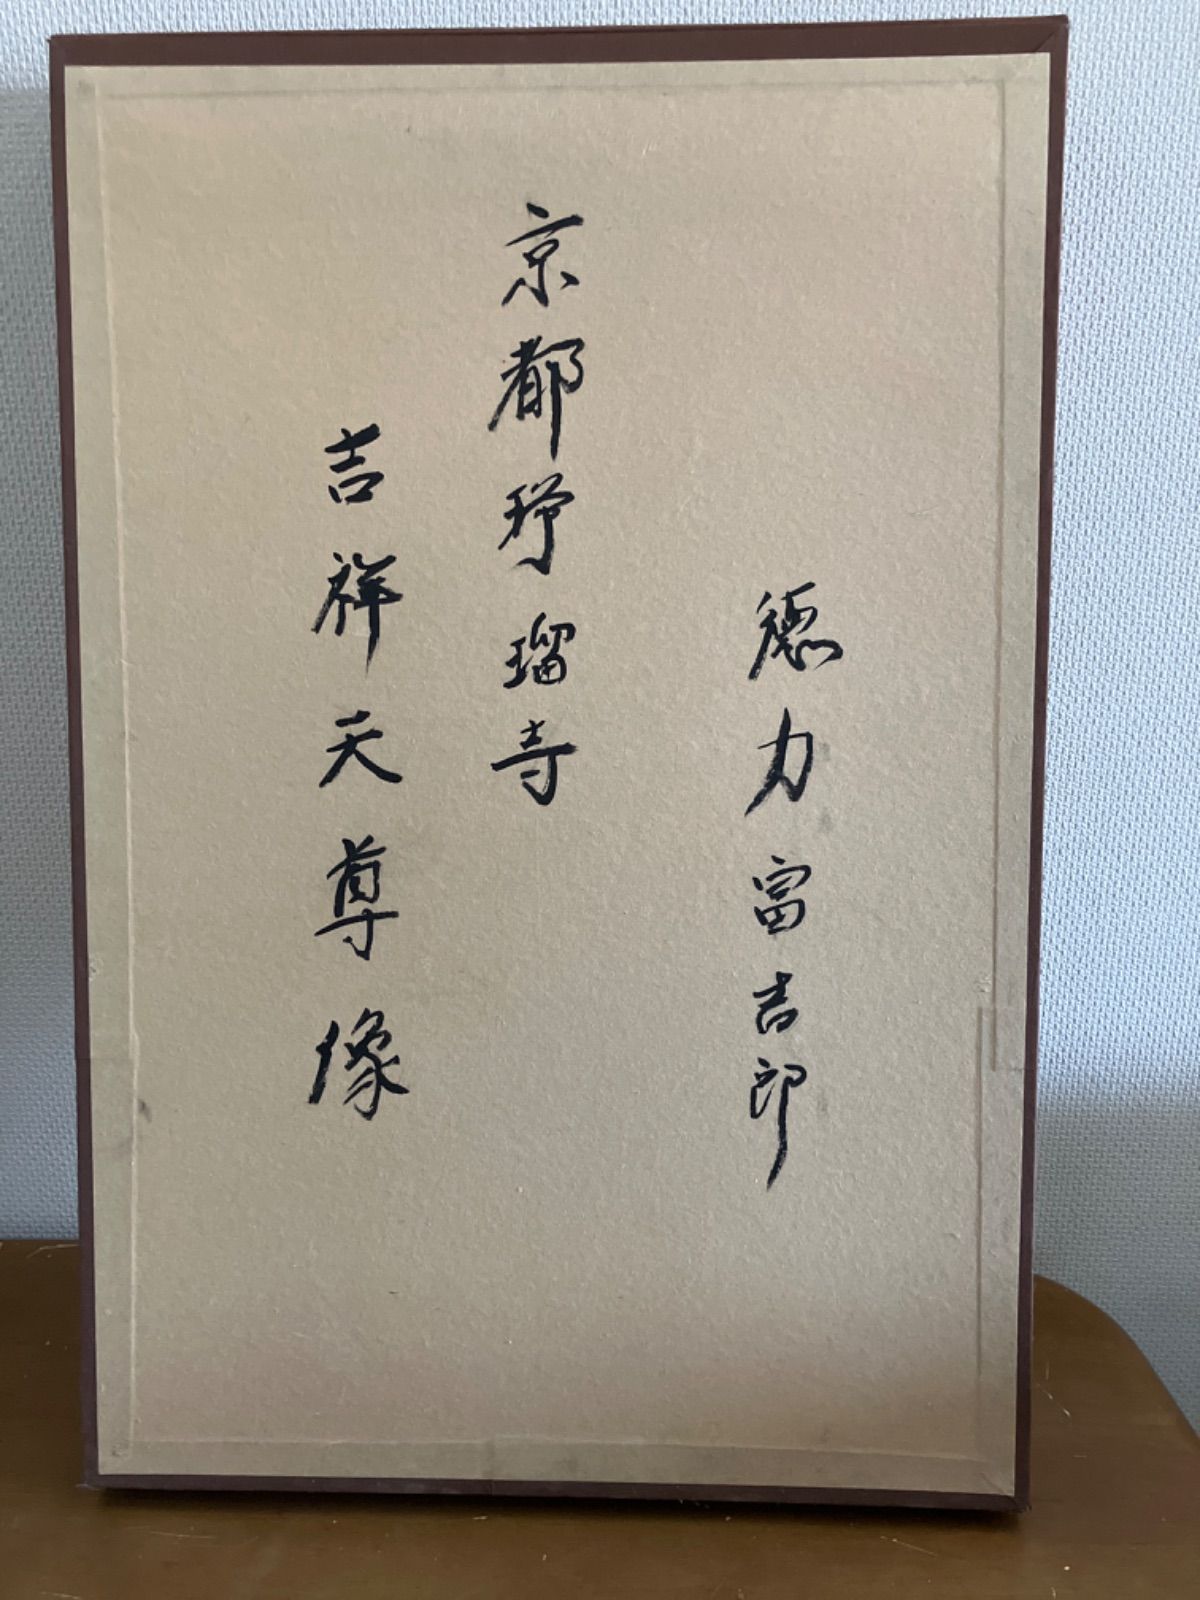 徳力富吉郎
京都浄瑠璃寺
吉祥天尊像